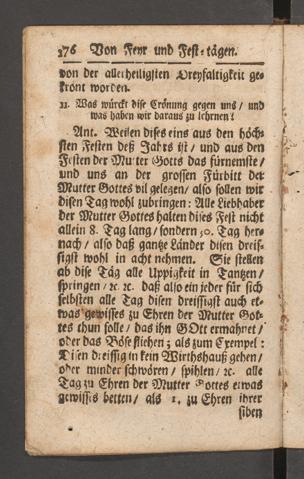 276 Von Feyr und Fest-tägen.
von der allerheiligsten Dreyfaltigkeit ge-
krönt worden.
11. Was würckt dise Crönung gegen uns / und
was haben wir daraus zu lehrnen?
Ant. Weilen dises eins aus den höch-
sten Festen deß Jahrs ist / und aus den
Festen der Mutter Gotts das fürnemste /
und uns an der grossen Fürbitt der
Mutter Gottes vil gelegen / also sollen wir
disen Tag wohl zubringen: Alle Liebhaber
der Mutter Gottes halten dises Fest nicht
allein 8. Tag lang / sondern 30. Tag her-
nach / also daß gantze Länder disen dreis-
sigst wohl in acht nehmen. Sie stellen
ab dise Täg alle Uppigkeit in Tantzen /
springen / ꝛc. ꝛc. daß also ein jeder für sich
selbsten alle Tag disen dreissigst auch et-
was gewisses zu Ehren der Mutter Got-
tes thun solle / das ihn GOtt ermahnet /
oder das Böse fliehen; als zum Exempel:
Disen dreissig in kein Wirthshauß gehen /
oder minder schwören / spihlen / ꝛc. alle
Tag zu Ehren der Mutter Gottes etwas
gewisses betten / als 1. zu Ehren ihrer
siben